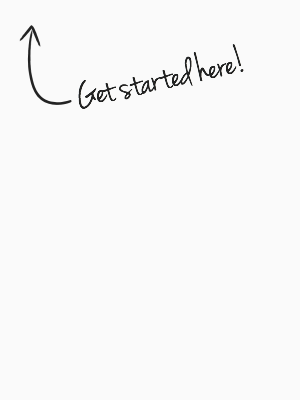 Get started here!